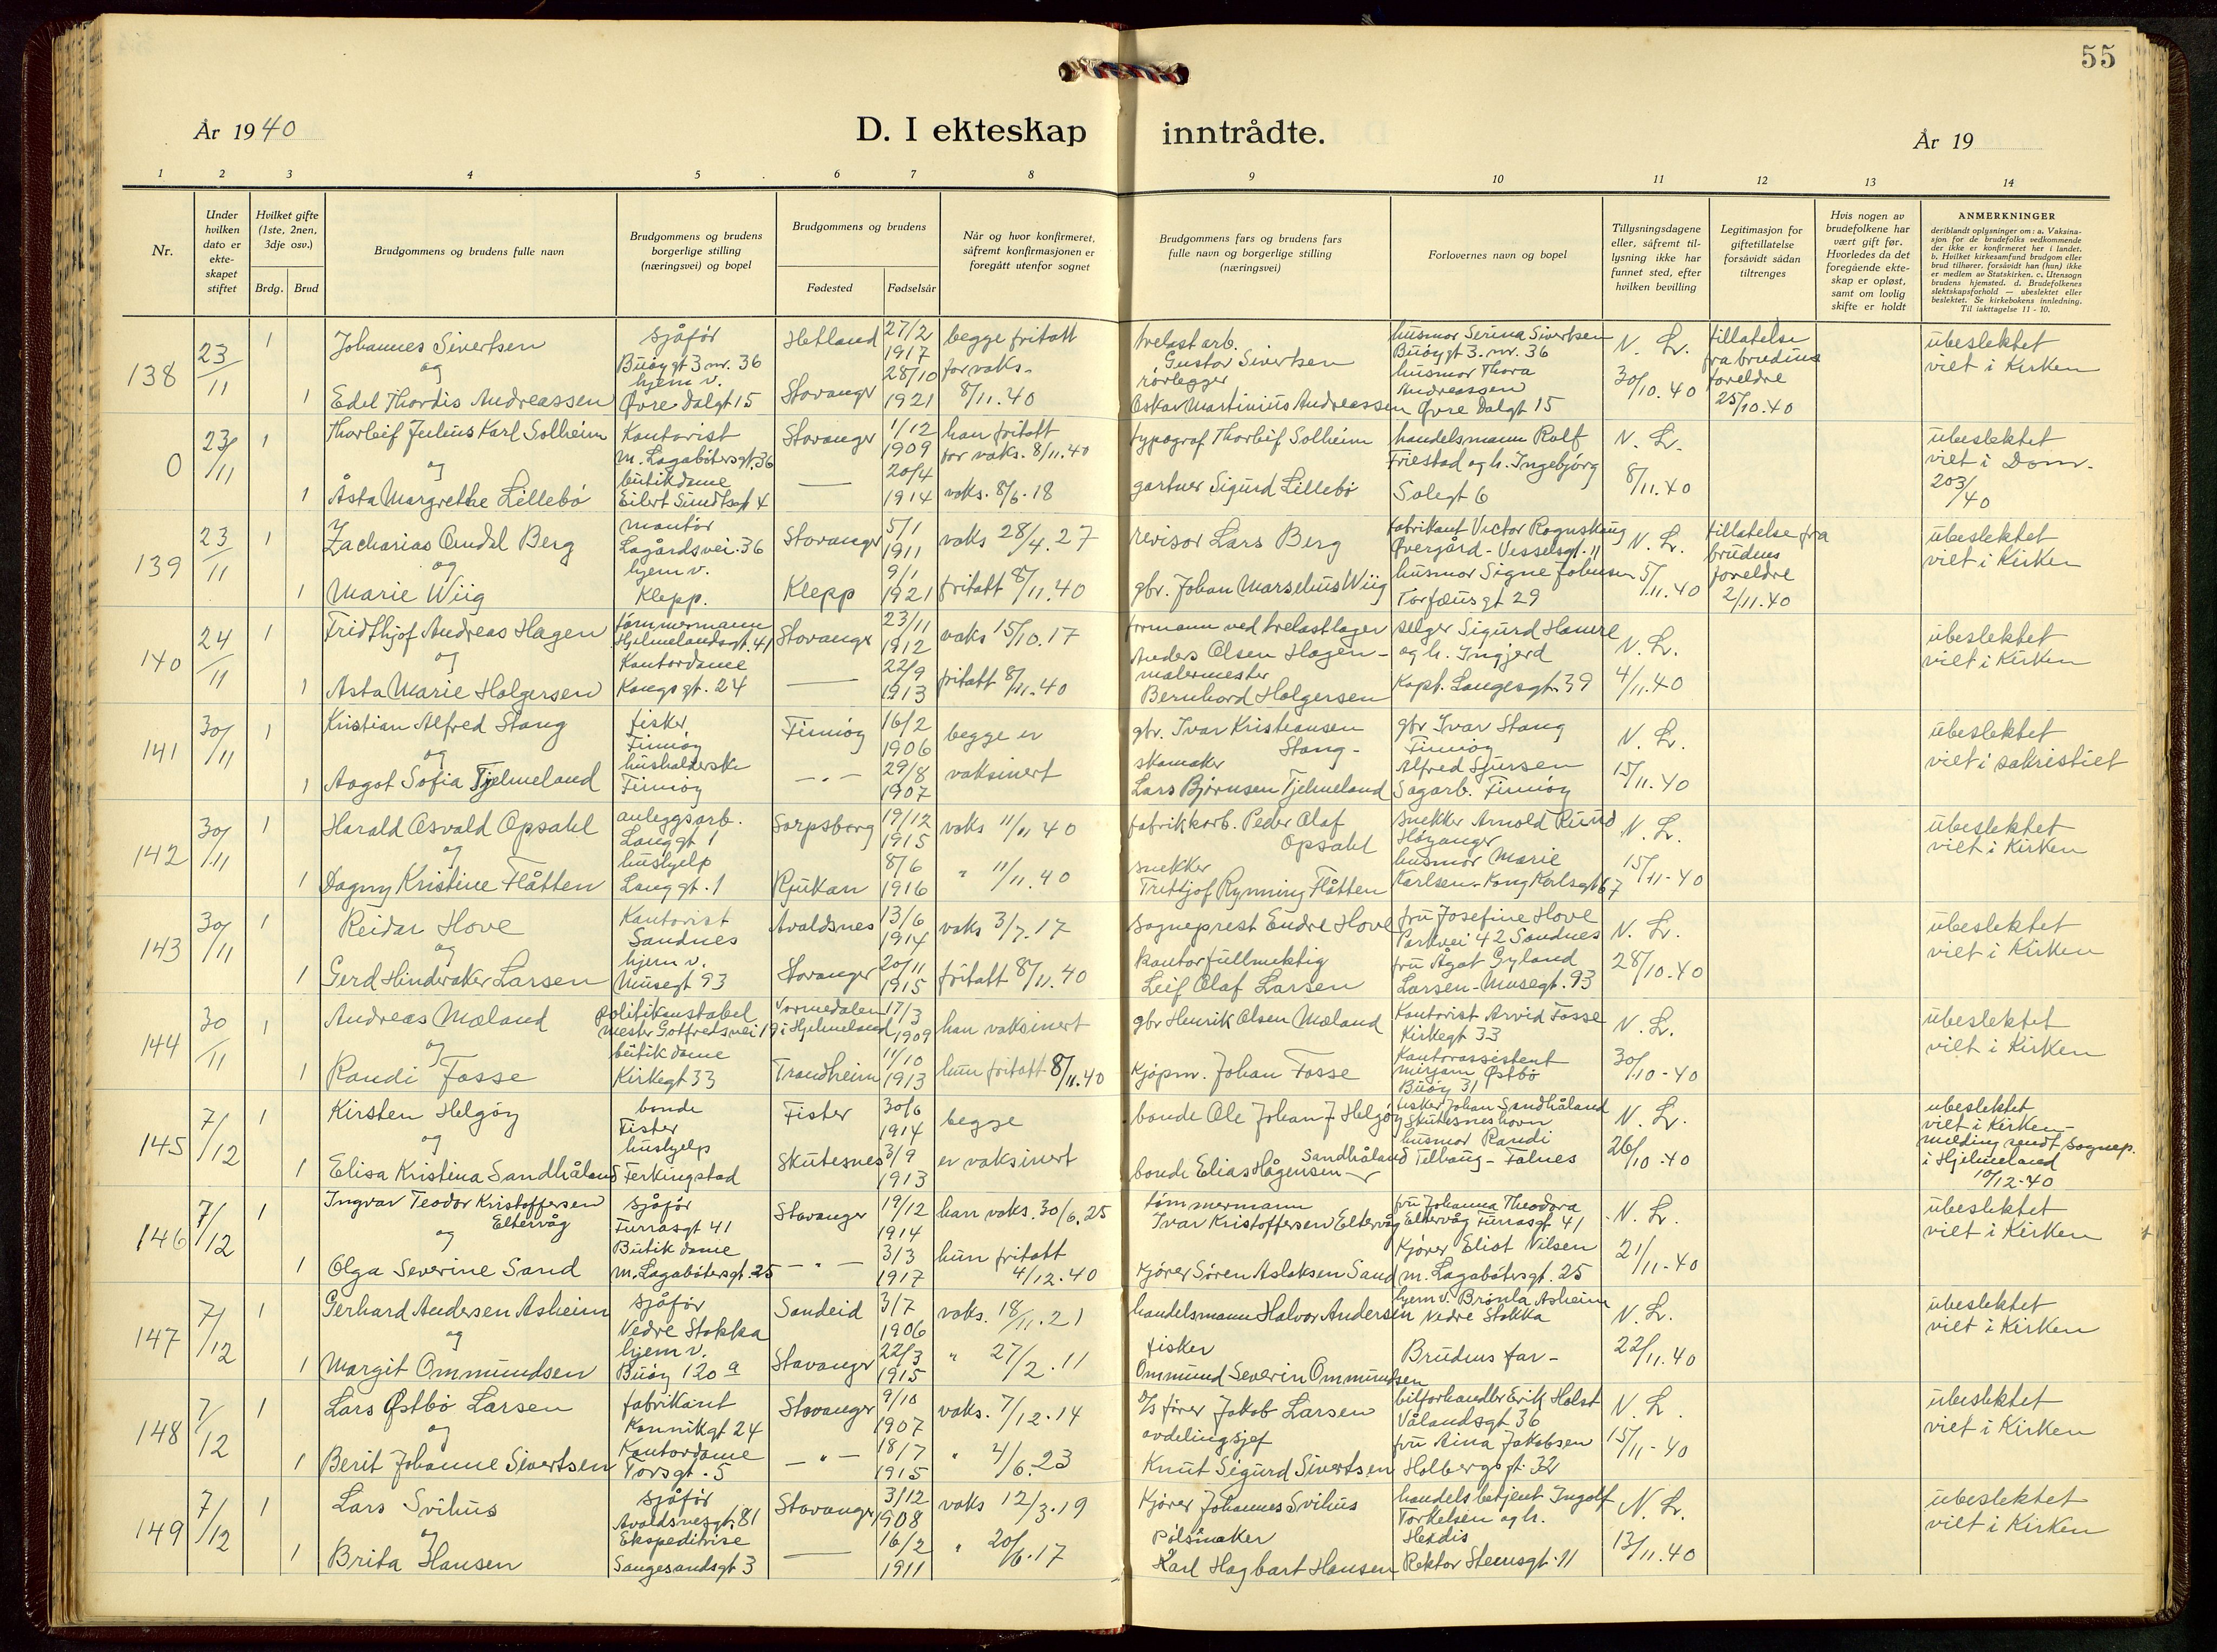 55
År 1940
D. I ekteskap inntrådte.
År 19
1 2 3 4 5 6 7 8 9 10 11 12 13 14
Nr.
Under hvilken dato er ekte-skapet stiftet
Hvilket gifte (1ste, 2nen, 3dje osv.)
Brdg. Brud
Brudgommens og brudens fulle navn
Brudgommens og brudens borgerlige stilling (næringsvei) og bopel
Brudgommens og brudens
Fødested Fødselsår
Når og hvor konfirmeret, såfremt konfirmasjonen er foregått utenfor sognet
Brudgommens fars og brudens fars fulle navn og borgerlige stilling (næringsvei)
Forlovernes navn og bopel
Tillysningsdagene eller, såfremt til-lysning ikke har funnet sted, efter hvilken bevilling
Legitimasjon for giftetillatelse forsåvidt sådan tiltrenges
Hvis nogen av brudefolkene har vært gift før. Hvorledes da det foregående ekte-skap er opløst, samt om lovlig skifte er holdt
ANMERKNINGER
deriblandt oplysninger om: a. Vaksina-sjon for de brudefolks vedkommende der ikke er konfirmeret her i landet. b. Hvilket kirkesamfund brudgom eller brud tilhører, forsåvidt han (hun) ikke er medlem av Statskirken. c. Utensogn brudens hjemsted. d. Brudefolkenes slektskapsforhold — ubeslektet eller beslektet. Se kirkebokens innledning. Til iakttagelse 11 - 10.
138 23/11 1 Johannes Sivertsen sjåfør Buøygt 3 nr. 36 Hetland 27/2 1917 begge fritatt for vaks. 8/11.40 trelast arb. Gustav Sivertsen husmor Serina Sivertsen Buøygt 3. nr. 36 N. L. 30/10.40 tillatelse fra brudens foreldre 25/10.40 ubeslektet viet i Kirken
og
1 Edel Thordis Andreassen hjem v. Øvre Dalgt 15 Stavanger 28/10 1921 rørlegger Oskar Martinius Andreassen husmor Thora Andreassen Øvre Dalgt 15
0 23/11 1 Thorleif Julius Karl Solheim Kontorist M. Lagabøtersgt. 36 Stavanger 1/12 1909 han fritatt for vaks. 8/11.40 typograf Thorleif Solheim handelsmann Rolf Friestad og h. Ingebjørg Solegt 6 N. L. 8/11.40 ubeslektet viet i Dom. 203/40
og
1 Åsta Margrethe Lillebø butikdame Eilert Sundtsgt 4 — 20/4 1914 vaks. 8/6.18 gartner Sigurd Lillebø
139 23/11 1 Zacharias Omdal Berg montør Lagårdsvei. 36 Stavanger 5/1 1911 vaks 28/4.27 revisor Lars Berg fabrikant Victor Rognskaug Øvergård - Vesselsgt. 11 N. L. 5/11.40 tillatelse fra brudens foreldre 2/11.40 ubeslektet viet i Kirken
og
1 Marie Wiig hjem v. Klepp. Klepp 9/1 1921 fritatt 8/11.40 gbr. Johan Marselius Wiig husmor Signe Johnsen Torfæusgt 29
140 24/11 1 Fridthjof Andreas Hagen tømmermann Hjelmelandsgt. 41 Stavanger 23/11 1912 vaks 15/10.17 formann ved trelastlager Anders Olsen Hagen - selger Sigurd Hamre og h. Ingjerd Kapt. Langesgt. 39 N. L. 4/11.40 ubeslektet viet i Kirken
og
1 Asta Marie Holgersen Kontordame Kongsgt. 24 — 22/9 1913 fritatt 8/11.40 malermester Bernhard Holgersen
141 30/11 1 Kristian Alfred Stang fisker Finnøy Finnøy 16/2 1906 begge er vaksinert gbr. Ivar Kristiansen Stang - gbr Ivar Stang Finnøy N. L. 15/11.40 ubeslektet viet i sakristiet
og
1 Aagot Sofia Tjelmeland husholderske Finnøy -"- 29/8 1907 skomaker Lars Bjørnsen Tjelmeland Alfred Sjursen Sagarb. Finnøy
142 30/11 1 Harald Osvald Opsahl anleggsarb. Langgt 1 Sarpsborg 19/12 1915 vaks 11/11 40 fabrikkarb. Peder Olaf Opsahl snekker Arnold Ruud Høyanger N. L. 15/11-40 ubeslektet viet i Kirken
og
1 Dagny Kristine Flåtten hushjelp Langgt. 1 Rjukan 8/6 1916 " 11/11.40 snekker Tritjof Rynning Flåtten husmor Marie Karlsen - Kong Karlsgt 67
143 30/11 1 Reidar Hove Kontorist Sandnes Avaldsnes 13/6 1914 vaks 3/7.17 sogneprest Endre Hove fru Josefine Hove Parkvei 42 Sandnes N. L. 28/10.40 ubeslektet viet i Kirken
og
1 Gerd Hinderaker Larsen hjem v. Musegt 93 Stavanger 20/11 1915 fritatt 8/11.40 kontorfullmektig Leif Olaf Larsen fru Ågot Gyland Larsen - Musegt. 93
144 30/11 1 Andreas Mæland politikonstabel mester Gotfredsvei 19 Vormedalen i Hjelmeland 17/3 1909 han vaksinert gbr Henrik Olsen Mæland Kontorist Arvid Fosse Kirkegt 33 N. L. 30/10-40 ubeslektet viet i Kirken
og
1 Randi Fosse butikdame Kirkegt 33 Trondheim 11/10 1913 hun fritatt 8/11.40 kjøpm. Johan Fosse Kontorassistent Mirjam Østbø Buøy 31
145 7/12 1 Kirsten Helgøy bonde Fister Fister 30/6 1914 begge er vaksinert bonde Ole Johan J Helgøy fisker Johan Sandhåland Skudesneshavn N. L. 26/10.40 ubeslektet viet i Kirken - melding sendt sognep. i Hjelmeland 10/12-40
og
1 Elisa Kristina Sandhåland hushjelp Ferkingstad Skutesnes 3/9 1913 bonde Elias Hågensen Sandhåland husmor Randi Telhaug - Falnes
146 7/12 1 Ingvar Teodor Kristoffersen Eltervåg sjåfør Furrasgt 41 Stavanger 19/12 1914 han vaks. 30/6.25 tømmermann Ivar Kristoffersen Eltervåg fru Johanna Theodora Eltervåg Furrasgt. 41 N. L. 21/11-40 ubeslektet viet i Kirken
og
1 Olga Severine Sand Butik dame M. Lagabøtersgt. 25 -"- 3/3 1917 hun fritatt 4/12.40 kjører Søren Aslaksen Sand kjører Eliot Nilsen M. Lagabøtersgt. 25
147 7/12 1 Gerhard Andersen Asheim sjåfør Nedre Stokka Sandeid 3/7 1906 vaks. 18/11.21 handelsmann Halvor Andersen hjem v. Brønla Asheim Nedre Stokka N. L. 22/11.40 ubeslektet viet i Kirken
og
1 Margit Ommundsen hjem v. Buøy 120 a Stavanger 22/3 1915 " 27/2.11 fisker Ommund Severin Ommundsen Brudens far -
148 7/12 1 Lars Østbø Larsen fabrikant Kannikgt 24 Stavanger 9/10 1907 vaks. 7/12.14 D/S fører Jakob Larsen bilforhandler Erik Holst Vålandsgt 36 N. L. 15/11-40 ubeslektet viet i Kirken
og
1 Berit Johanne Sivertsen Kontordame Torsgt. 5 -"- 18/7 1915 " 4/6.23 avdelingsjef Knut Sigurd Sivertsen fru Aina Jakobsen Holbergsgt. 32
149 7/12 1 Lars Svihus sjåfør Avaldsnesgt. 81 Stavanger 3/12 1908 vaks 12/3.19 Kjører Johannes Svihus handelsbetjent Ingolf Torkelsen og h. Heddis Rektor Steensgt. 11 N. L. 13/11.40 ubeslektet viet i Kirken
og
1 Brita Hansen Ekspeditrise Sangesandsgt 3 — 16/2 1911 " 20/6.17 pølsmaker Karl Hagbart Hansen